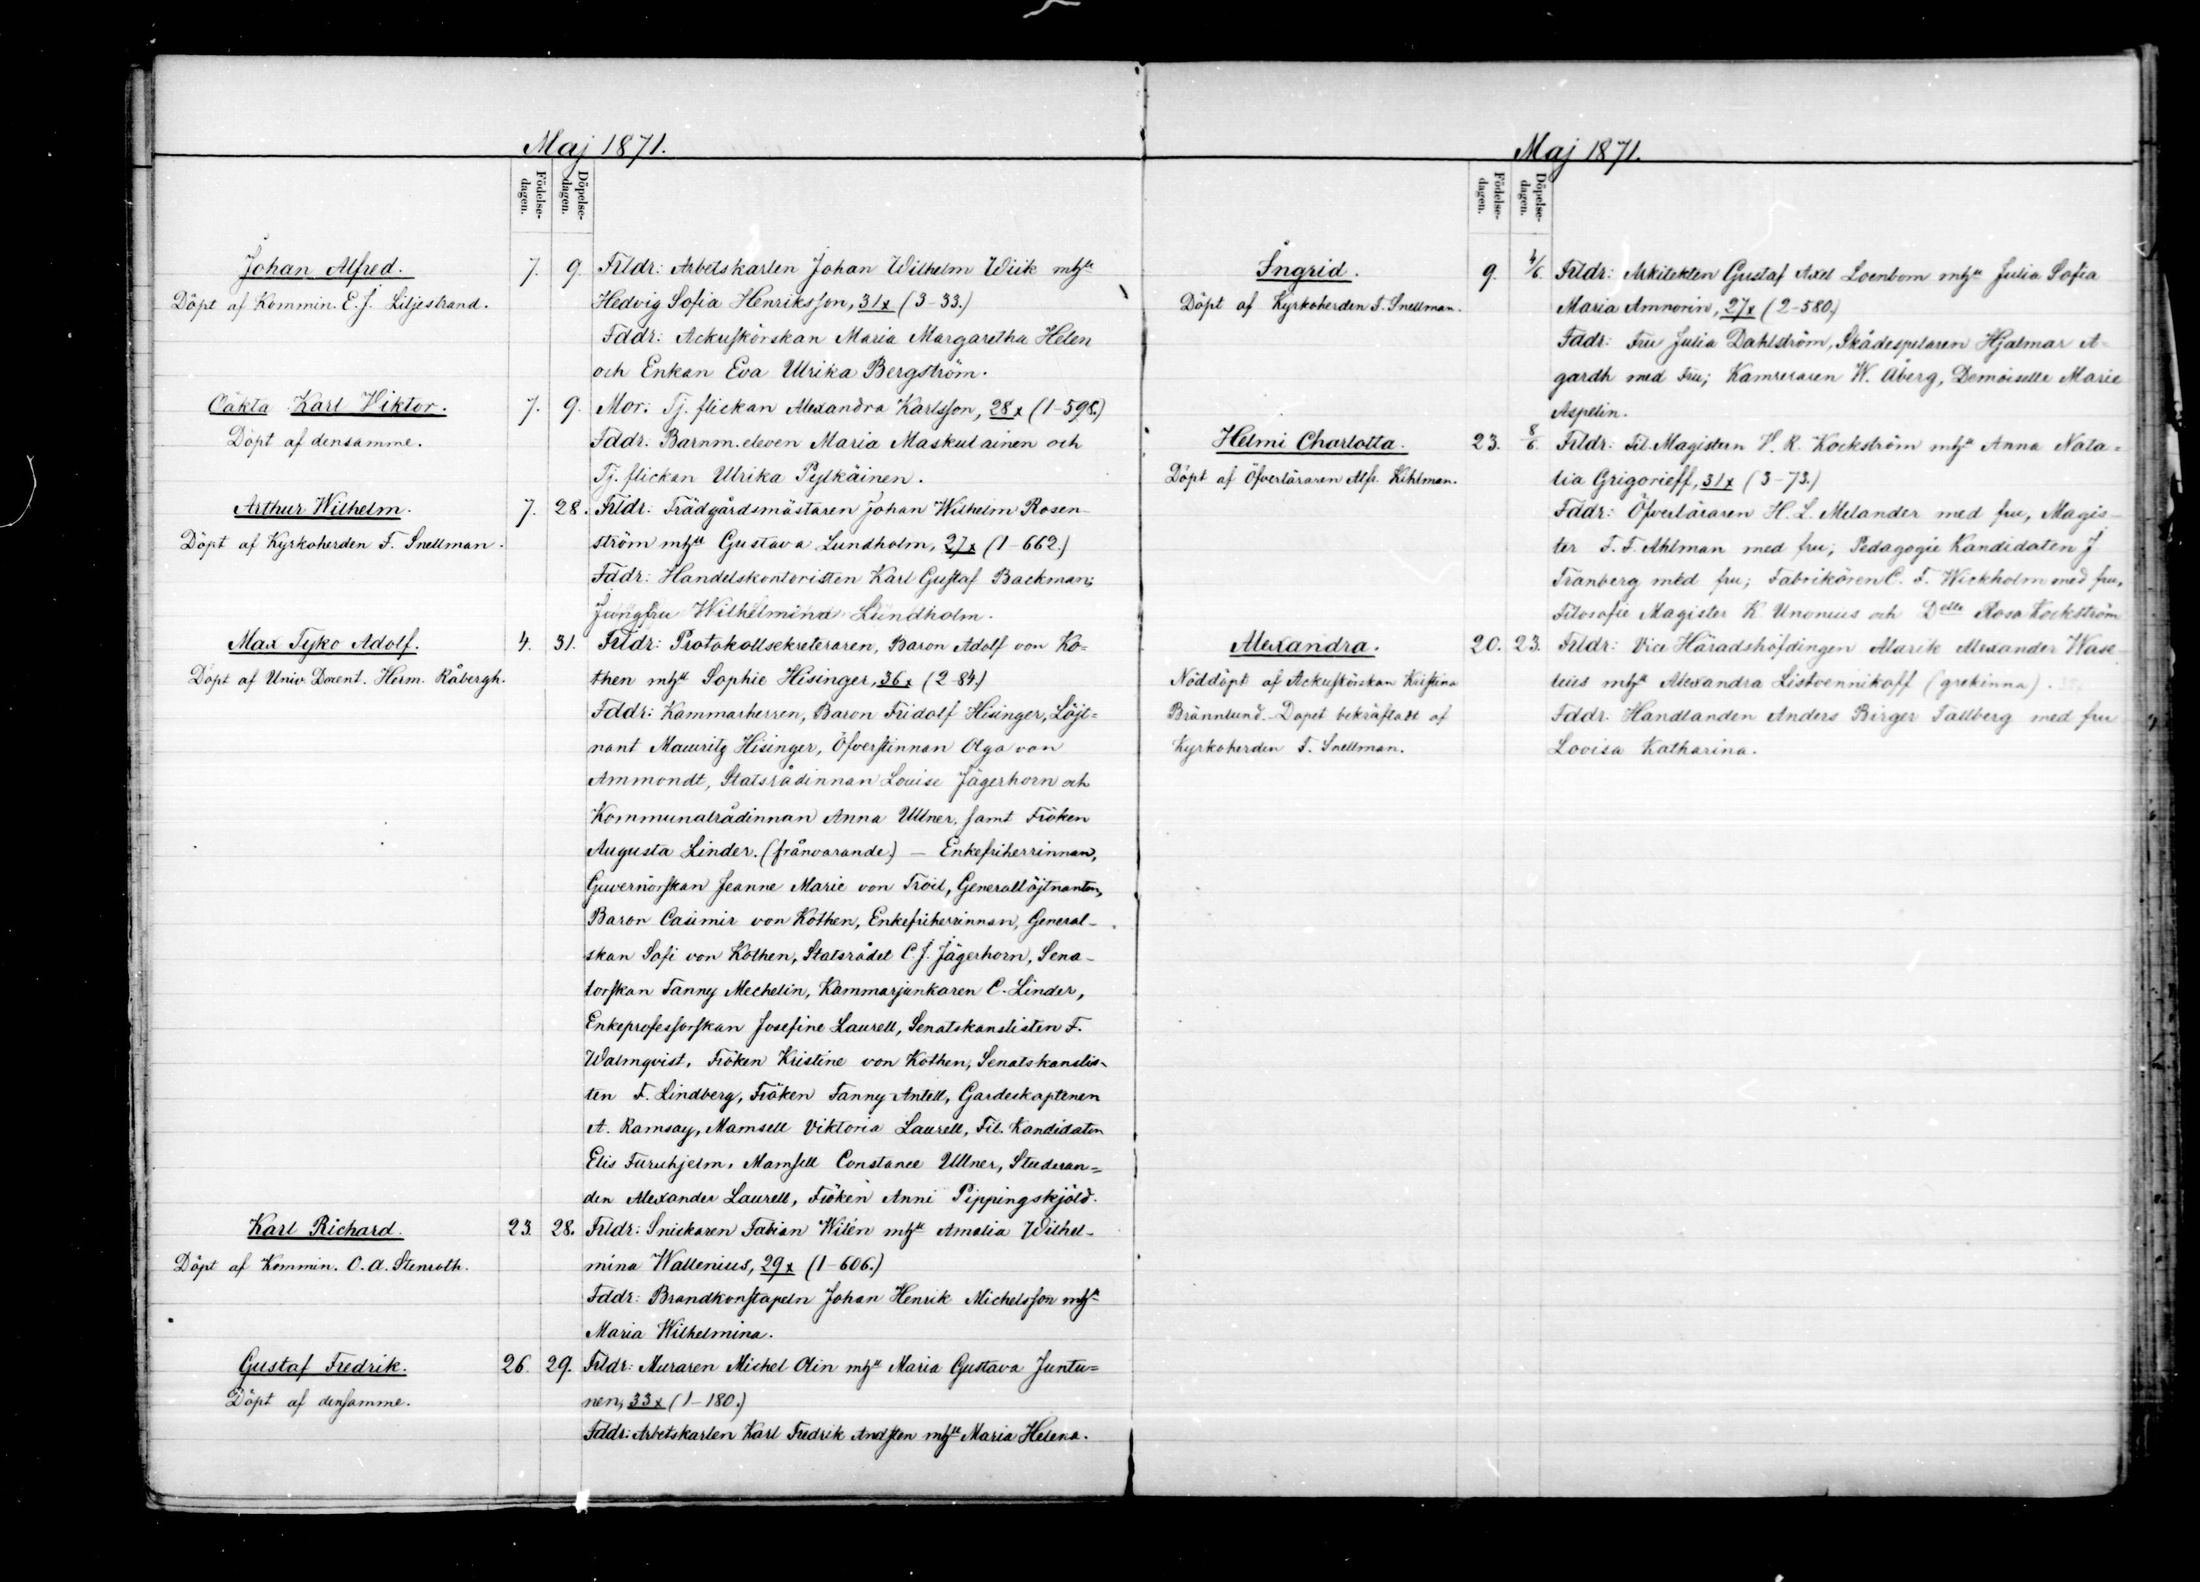 Maj 1871.
Födelse-
dagen.
Döpelse-
dagen.
Johan Alfred. 7. 9. Frldr: Arbetskarlen Johan Wilhelm Wiik mhu
Döpt af Kommin. E. J. Liljestrand. Hedvig Sofia Henriksson, 31x (3-33.)
Fddr: Ackuskörskan Maria Margaretha Helen
och Enkan Eva Ulrika Bergström.
Oäkta Karl Viktor. 7. 9. Mor: Tj. flickan Alexandra Karlsson, 28x (1-598.)
Döpt af densamme. Fddr: Barnm. eleven Maria Maskulainen och
Tj. flickan Ulrika Pylkäinen.
Arthur Wilhelm. 7. 28. Frldr: Trädgårdsmästaren Johan Wilhelm Rosen-
Döpt af Kyrkoherden F. Snellman. ström mhu Gustava Lundholm, 27x (1-662.)
Fddr: Handelskontoristen Karl Gustaf Backman;
Jungfru Wilhelmina Lundholm.
Max Tyko Adolf. 4. 31. Frldr: Protokollsekreteraren, Baron Adolf von Ko=
Döpt af Univ. Docent. Herm. Råbergh. then mhu Sophie Hisinger, 36x (2-84.)
Fddr: Kammarherren, Baron Fridolf Hisinger, Löjt=
nant Mauritz Hisinger, Öfverstinnan Olga von
Ammondt, Statsrådinnan Louise Jägerhorn och
Kommunalrådinnan Anna Ullner, samt Fröken
Augusta Linder. (frånvarande) — Enkefriherrinnan,
Guvernörskan Jeanne Marie von Troil, Generallöjtnanten,
Baron Casimir von Kothen, Enkefriherrinnan, General-
skan Sofi von Kothen, Statsrådet C. J. Jägerhorn, Sena-
torskan Fanny Mechelin, Kammarjunkaren C. Linder,
Enkeprofessorskan Josefine Laurell, Senatskanslisten F.
Walmqvist, Fröken Kristine von Kothen, Senatskanslis-
ten F. Lindberg, Fröken Fanny Antell, Gardeskaptenen
A. Ramsay, Mamsell Viktoria Laurell, Fil. Kandidaten
Elis Furuhjelm, Mamsell Constance Ullner, Studeran=
den Alexander Laurell, Fröken Anni Pippingskjöld.
Karl Richard. 23. 28. Frldr: Snickaren Fabian Wilén mhu Amalia Wilhel-
Döpt af Kommin. O. A. Stenroth. mina Wallenius, 29x (1-606.)
Fddr: Brandkonstapeln Johan Henrik Michelsson mhu
Maria Wilhelmina.
Gustaf Fredrik. 26. 29. Frldr: Muraren Michel Olin mhu Maria Gustava Juntu=
Döpt af densamme. nen, 33x (1-180.)
Fddr: Arbetskarlen Karl Fredrik Andsten mhu Maria Helena.
Maj 1871.
Födelse-
dagen.
Döpelse-
dagen.
Ingrid. 9. 4/6 Frldr: Arkitekten Gustaf Axel Loenbom mhu Julia Sofia
Döpt af Kyrkoherden F. Snellman. Maria Amnorin, 27x (2-580.)
Fddr: Fru Julia Dahlström, Skådespelaren Hjalmar A=
gardh med Fru; Kamreraren W. Åberg, Demoiselle Marie
Aspelin.
Helmi Charlotta. 23. 8/6. Frldr: Fil. Magistern V. R. Kockström mhu Anna Nata=
Döpt af Öfverläraren Alfr. Kihlman. lia Grigorieff, 31x (3-73.)
Fddr: Öfverläraren H. L. Melander med fru, Magis-
ter F. F. Ahlman med fru; Pedagogie Kandidaten J
Tranberg med fru; Fabrikören C. F. Wickholm med fru,
Filosofie Magister K Unonius och Delle Rosa Kockström
Alexandra. 20. 23. Frldr: Vice Häradshöfdingen Alarik Alexander Wase
Nöddöpt af Ackuskörskan Kristina leius mhu Alexandra Listvennikoff (grekinna).
Brännlund. Dopet bekräftadt af Fddr. Handlanden Anders Birger Tallberg med fru
Kyrkoherden F. Snellman. Lovisa Katharina.